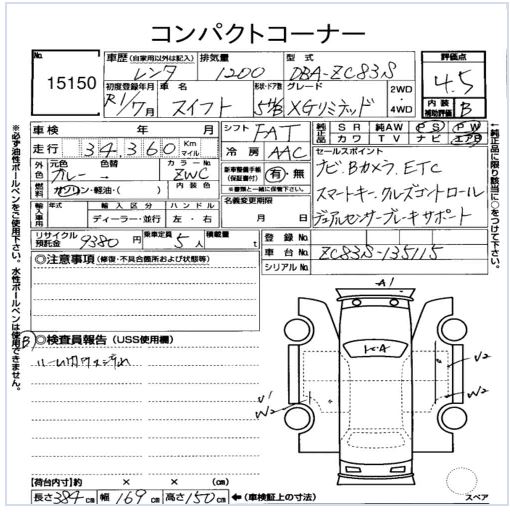 コンパクトコーナー
No. 15150
車歴 (自家用以外は記入) 排気量 型式 評価点
レンタ 1200 DBA-ZC83S 4.5
初度登録年月 車名 形状・ドア数 グレード 2WD・4WD 内装補助評価 B
R1/7月 スイフト 5HB XGリミテッド
車検 年 月 シフト FAT 純正品 SR 純AW PS PW
カワ TV ナビ エアB
走行 34,360 Km マイル 冷房 AAC
セールスポイント
外色 元色 色替 カラーNo. ZWC
ブルー →
ナビ、Bカメラ、ETC
燃料 ガソリン・軽油・( ) 内装色
新車整備手帳 (保証書付) 有・無
※書類と一緒に保管下さい。
スマートキー、クルーズコントロール
輸入車用 年式 輸入区分 ハンドル
ディーラー・並行 左・右
名義変更期限
月 日
デュアルセンサーブレーキサポート
リサイクル預託金 9380 円 乗車定員 5 人 積載量 t
登録No.
車台No. ZC83S-135115
シリアルNo.
◎注意事項 (修復・不具合箇所および状態等)
A1
B ◎検査員報告 (USS使用欄)
ルーム内ウス汚れ
U2
W2
W2
【荷台内寸】約 × × (cm)
長さ 384 cm 幅 169 cm 高さ 150 cm ←(車検証上の寸法)
スペア
※必ず油性ボールペンをご使用下さい。水性ボールペンは使用できません。
←純正品に限り該当に○をつけて下さい。